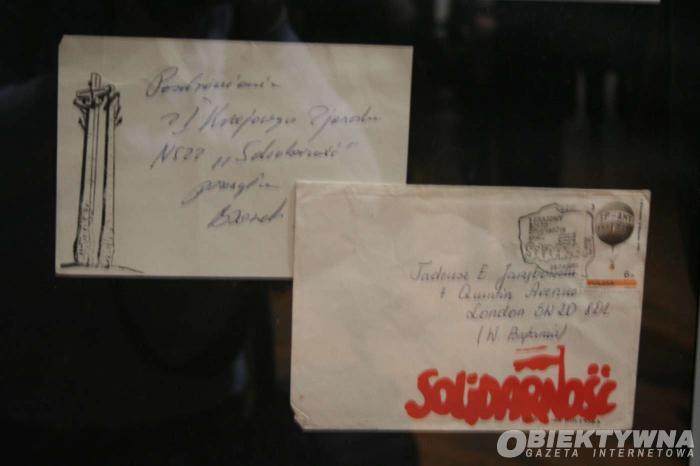 Pozdrowienia
z I Krajowego Zjazdu
NSZZ „Solidarność"
przesyła
I KRAJOWY
ZJAZD
Tadeusz E. Jarzębowski
7 Quintin Avenue
London SW20 8DL
(W. Brytania)
POLSKA
SOLIDARNOŚĆ
OBIEKTYWNA
GAZETA INTERNETOWA